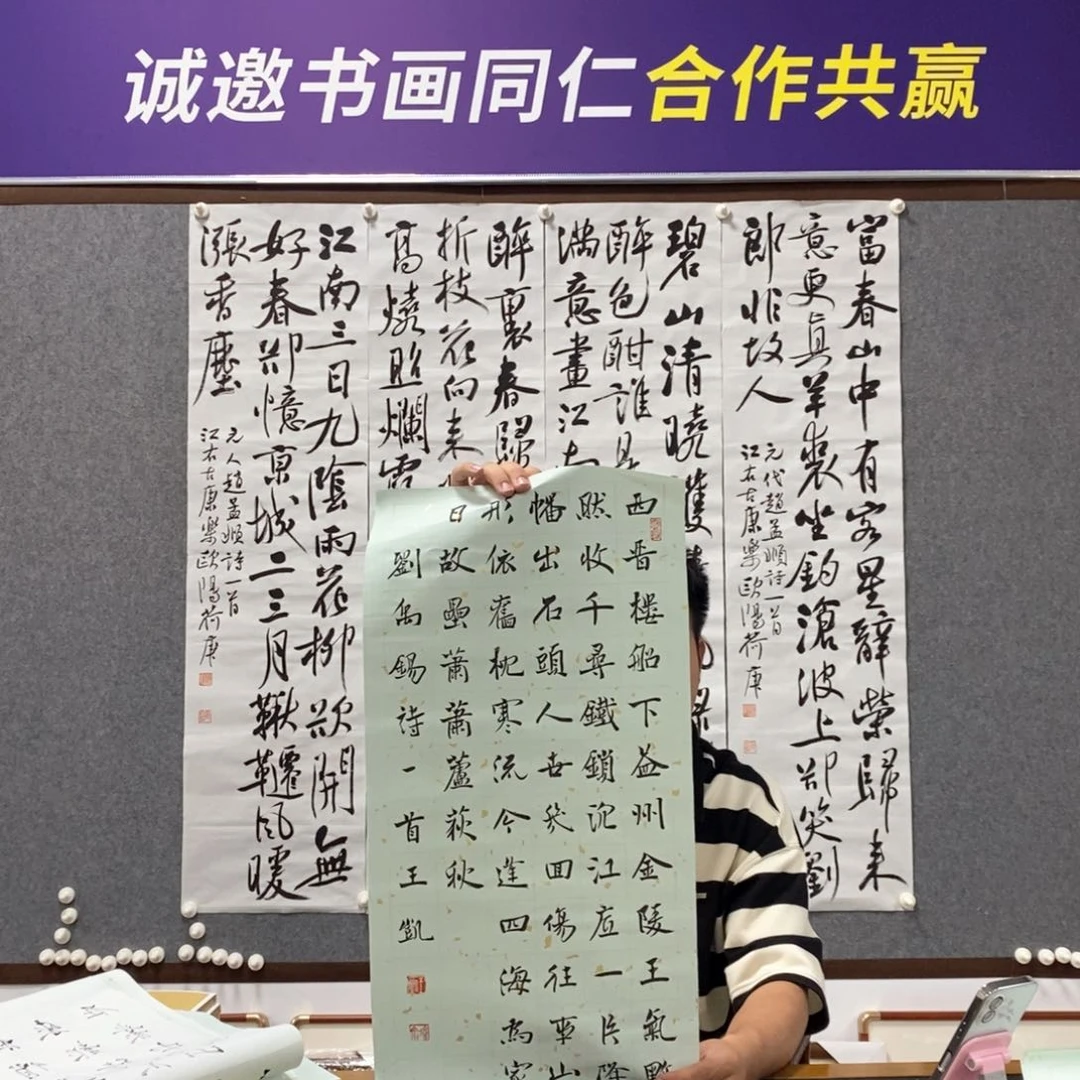 诚邀书画同仁合作共赢
富春山中有客星辭榮歸来
意更真羊裘坐釣滄波上却笑劉
郎非故人
元代趙孟頫詩一首
江右古康樂歐陽荷庚
碧山清曉護
醉色酣誰是
滿意畫江南
醉裏春歸
折枝花向来
高燒照爛霞
江南三日九陰雨花柳欲開無
好春却憶京城二三月鞦韆风暖
漲香塵
元人趙孟頫詩一首
江右古康樂歐陽荷庚
西晋樓船下益州金陵王氣黯
然收千尋鐵鎖沉江底一片降
幡出石頭人世幾回傷往事山
形依舊枕寒流今逢四海為家
日故壘蕭蕭蘆荻秋
劉禹錫詩一首王凱